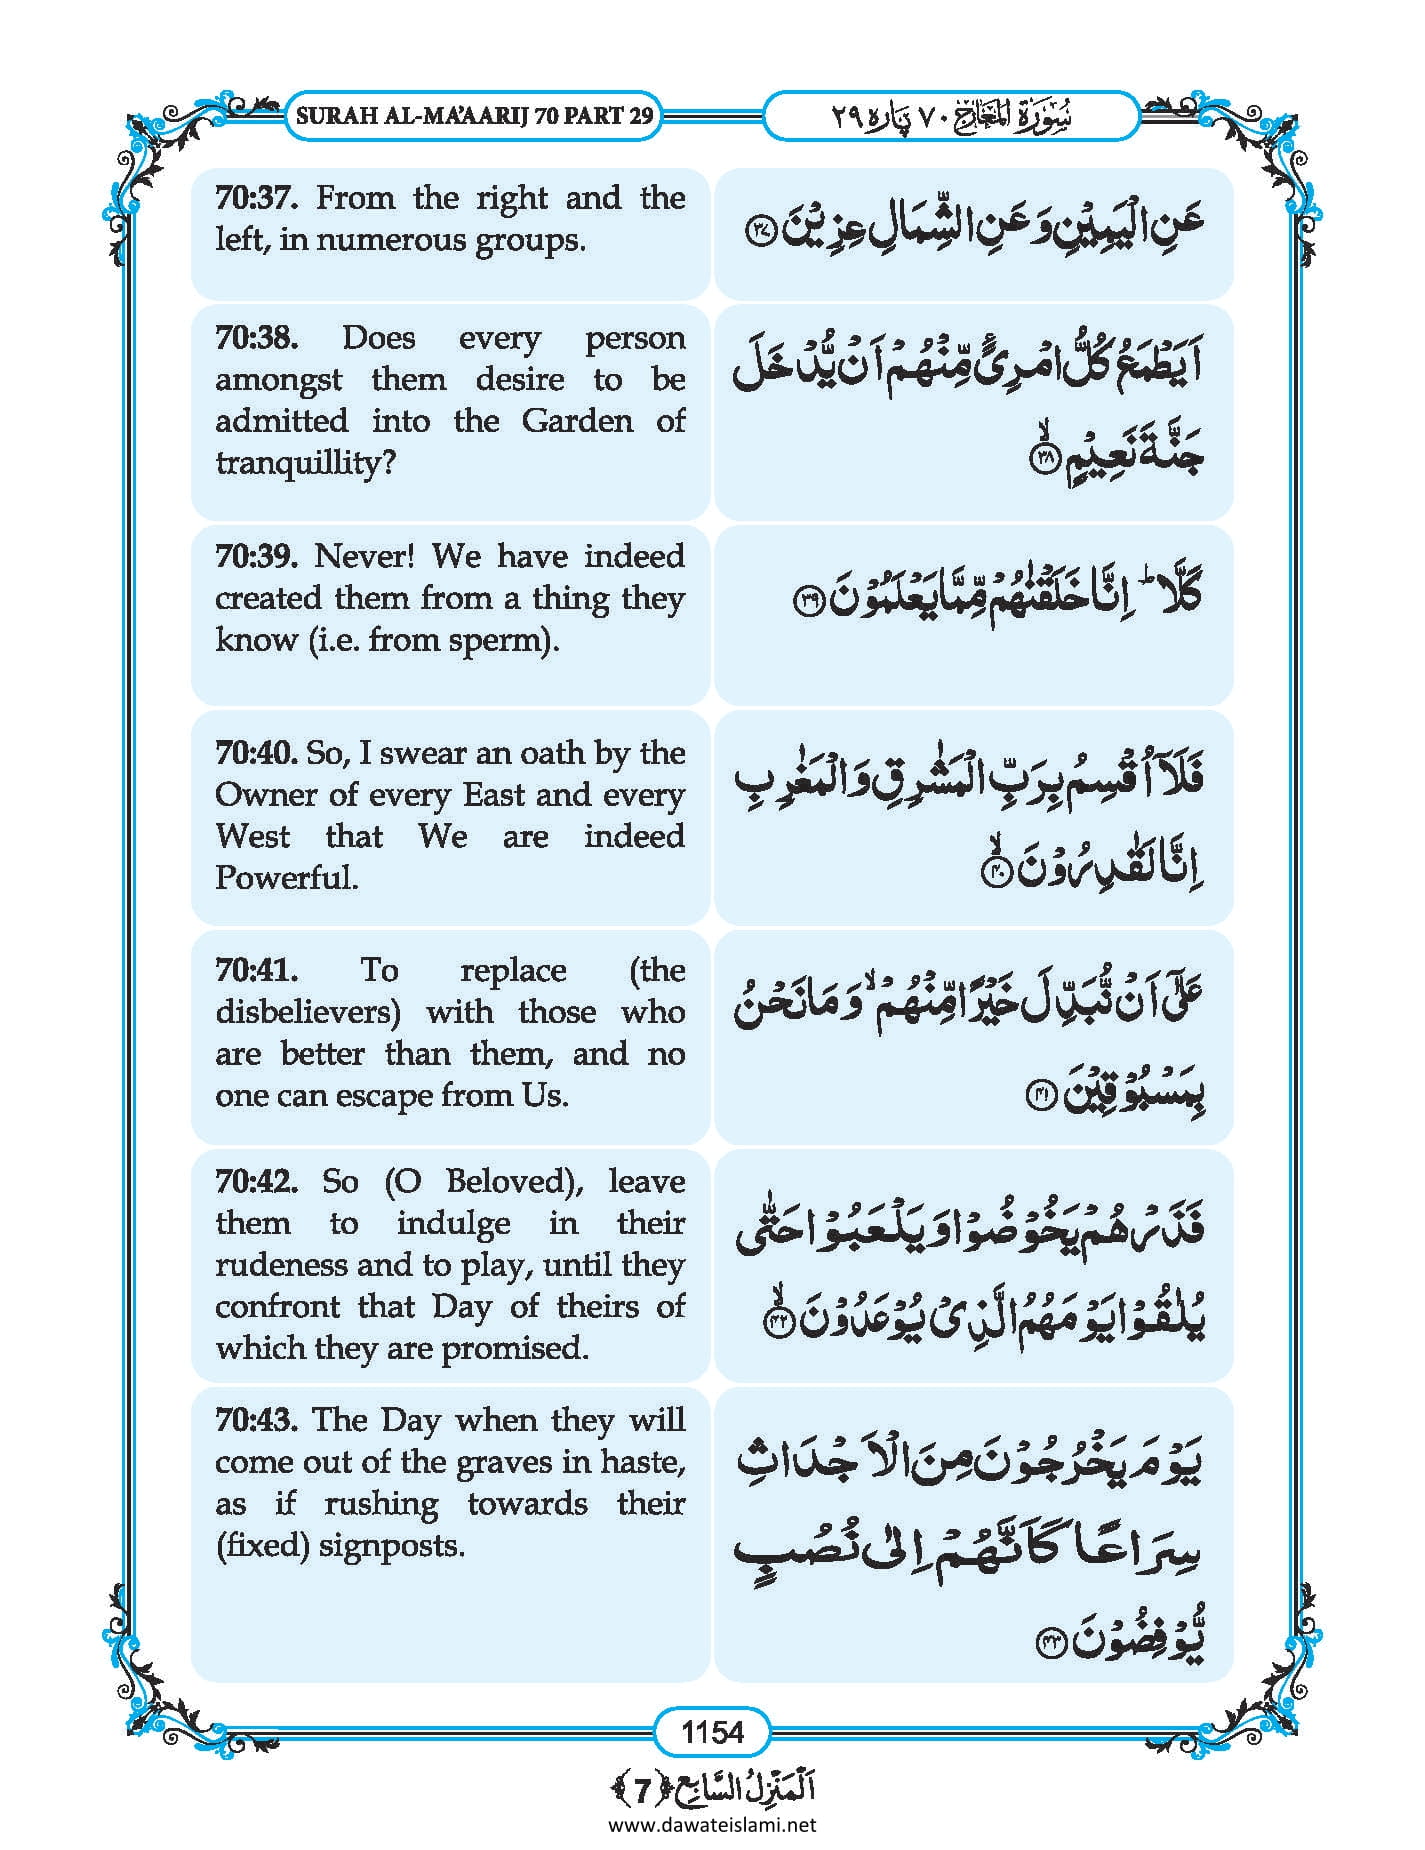 SURAH AL-MA’AARIJ 70 PART 29
سُوْرَةُ الْمَعَارِج ٧٠ پَارہ ٢٩
70:37. From the right and the
left, in numerous groups.
عَنِ الْیَمِیْنِ وَ عَنِ الشِّمَالِ عِزِیْنَ ﴿۳۷﴾
70:38. Does every person
amongst them desire to be
admitted into the Garden of
tranquillity?
اَیَطْمَعُ كُلُّ امْرِئٍ مِّنْهُمْ اَنْ یُّدْخَلَ
جَنَّةَ نَعِیْمٍ ﴿ۙ۳۸﴾
70:39. Never! We have indeed
created them from a thing they
know (i.e. from sperm).
كَلَّا ؕ اِنَّا خَلَقْنٰهُمْ مِّمَّا یَعْلَمُوْنَ ﴿۳۹﴾
70:40. So, I swear an oath by the
Owner of every East and every
West that We are indeed
Powerful.
فَلَاۤ اُقْسِمُ بِرَبِّ الْمَشٰرِقِ وَ الْمَغٰرِبِ
اِنَّا لَقٰدِرُوْنَ ﴿ۙ۴۰﴾
70:41. To replace (the
disbelievers) with those who
are better than them, and no
one can escape from Us.
عَلٰۤی اَنْ نُّبَدِّلَ خَیْرًا مِّنْهُمْ ۙ وَ مَا نَحْنُ
بِمَسْبُوْقِیْنَ ﴿۴۱﴾
70:42. So (O Beloved), leave
them to indulge in their
rudeness and to play, until they
confront that Day of theirs of
which they are promised.
فَذَرْهُمْ یَخُوْضُوْا وَ یَلْعَبُوْا حَتّٰی
یُلٰقُوْا یَوْمَهُمُ الَّذِیْ یُوْعَدُوْنَ ﴿ۙ۴۲﴾
70:43. The Day when they will
come out of the graves in haste,
as if rushing towards their
(fixed) signposts.
یَوْمَ یَخْرُجُوْنَ مِنَ الْاَجْدَاثِ
سِرَاعًا كَاَنَّهُمْ اِلٰی نُصُبٍ
یُّوْفِضُوْنَ ﴿۴۳﴾
1154
اَلْمَنْزِلُ السَّابِع ﴿7﴾
www.dawateislami.net